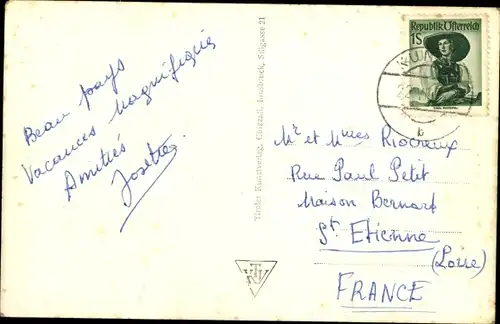 Beau pays
Vacances Magnifiques
Amitiés
Josette
Tiroler Kunstverlag, Chizzali, Innsbruck, Sillgasse 21
Republik Österreich
1S
KU
b
Mr et Mmes Riocreux
Rue Paul Petit
Maison Bernard
St Etienne
(Loire)
FRANCE